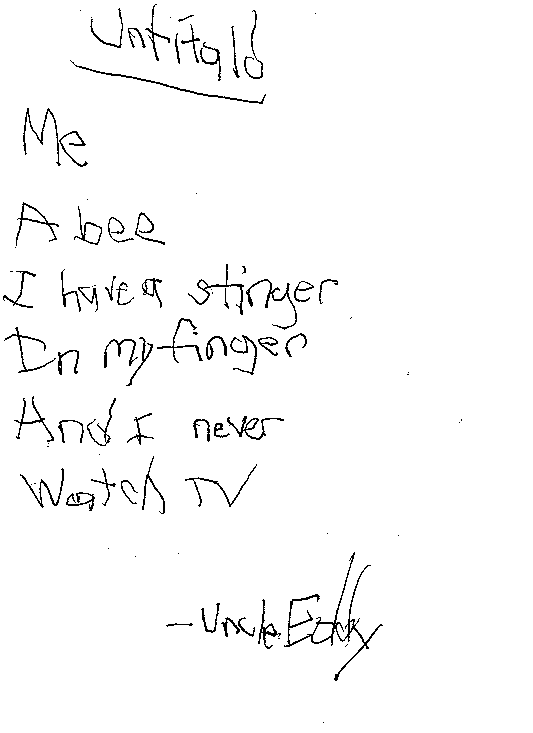 Untitald
Me
A bee
I have a stinger
In my finger
And I never
Watch TV
- Uncle Eddy